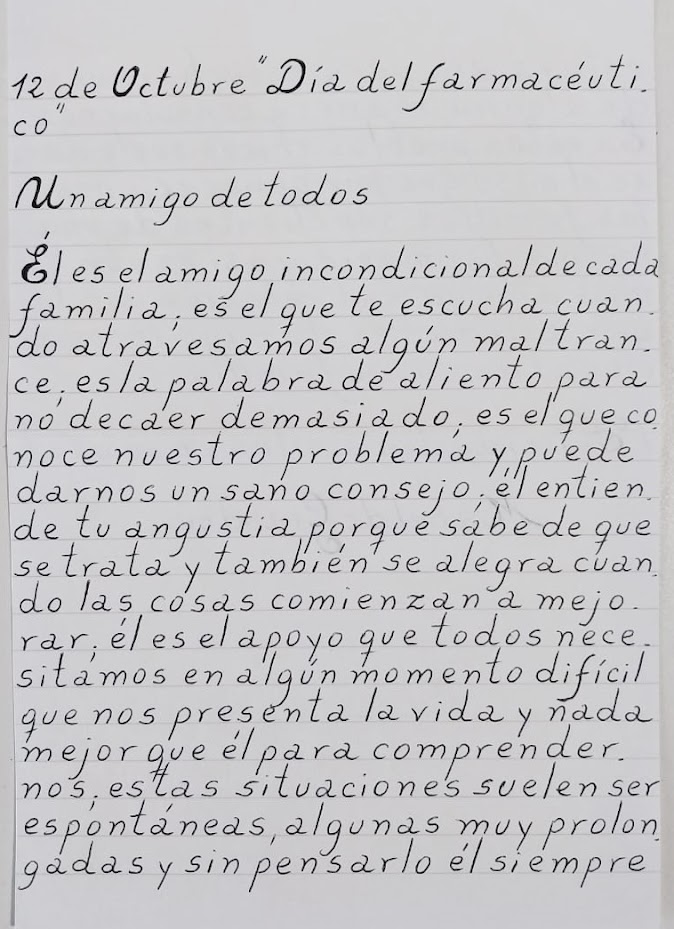 12 de Octubre "Día del farmacéuti.
co"
Un amigo de todos
Él es el amigo incondicional de cada
familia; es el que te escucha cuan.
do atravesamos algún mal tran.
ce; es la palabra de aliento para
no decaer demasiado; es el que co.
noce nuestro problema y puede
darnos un sano consejo; él entien.
de tu angustia porque sabe de que
se trata y también se alegra cuan.
do las cosas comienzan a mejo.
rar; él es el apoyo que todos nece.
sitamos en algún momento difícil
que nos presenta la vida y nada
mejor que él para comprender.
nos; estas situaciones suelen ser
espontáneas, algunas muy prolon.
gadas y sin pensarlo él siempre